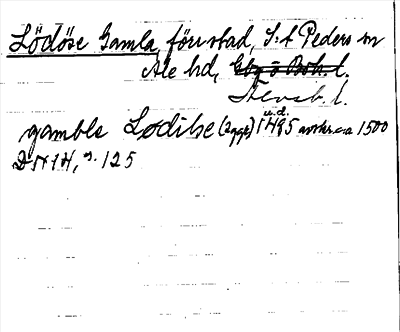 Lödöse Gamla, förr stad, S:t Peders sn
Ale hd, Gbg o Boh. l.
Älvsb. l.
gamble Lødise (2 ggr) u.d. 1495 avskr. ca 1500
DN 14, s. 125